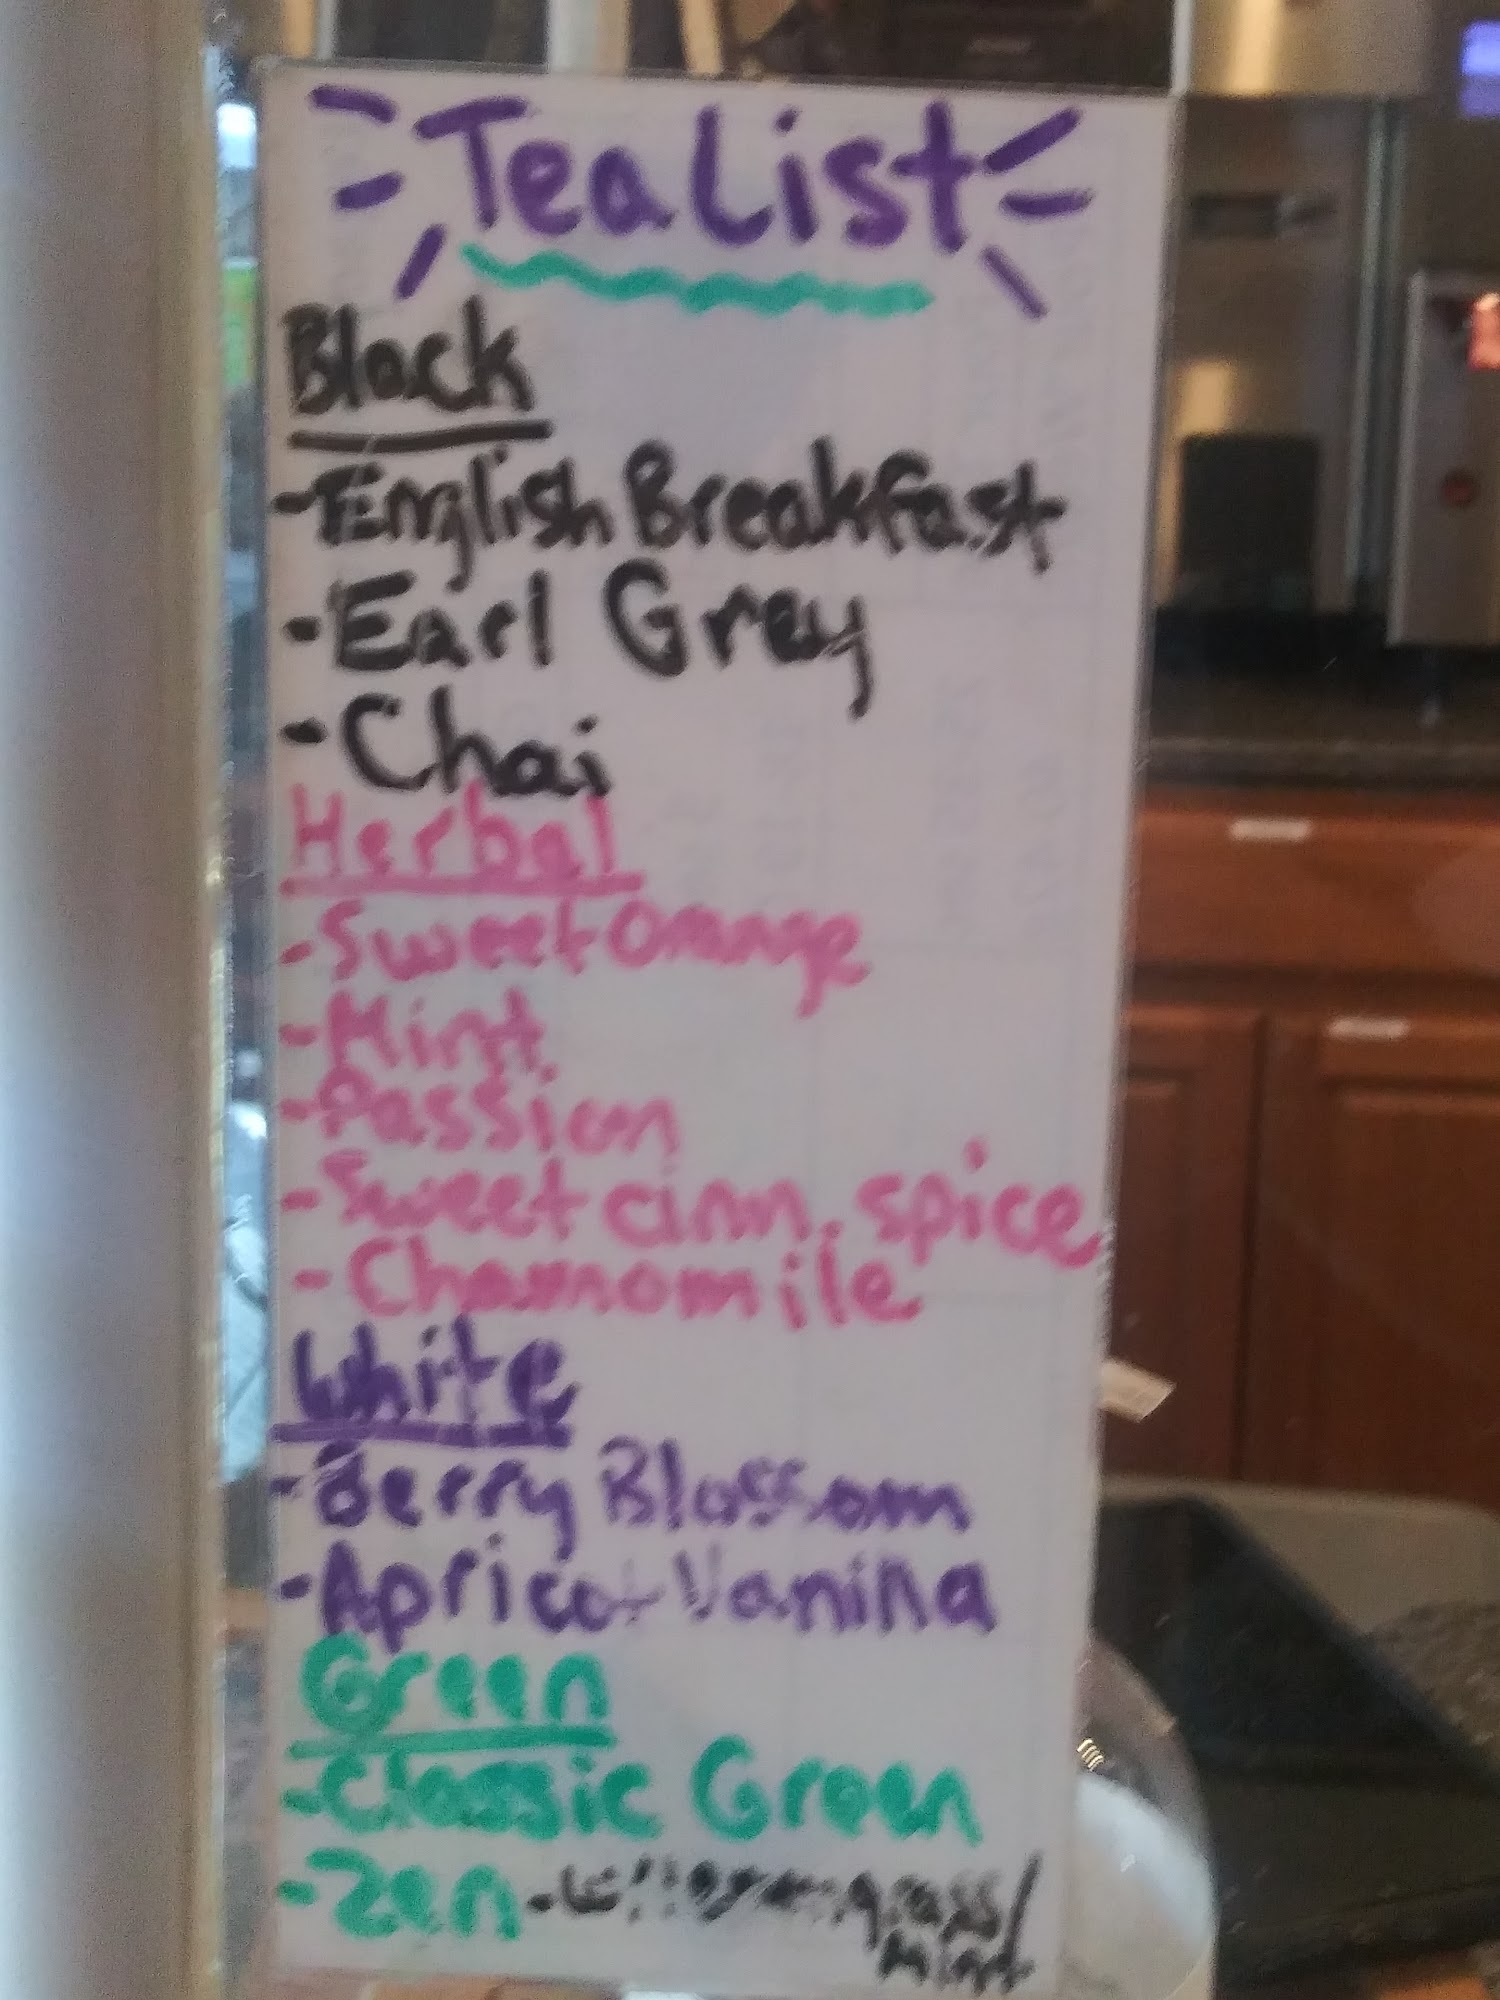 Tea List
Black
- English Breakfast
- Earl Grey
- Chai
Herbal
- Sweet Orange
- Mint
- Passion
- Sweet cinn. spice
- Chamomile
White
- Berry Blossom
- Apricot Vanilla
Green
- Classic Green
- Zen - w/ lemongrass/
Mint